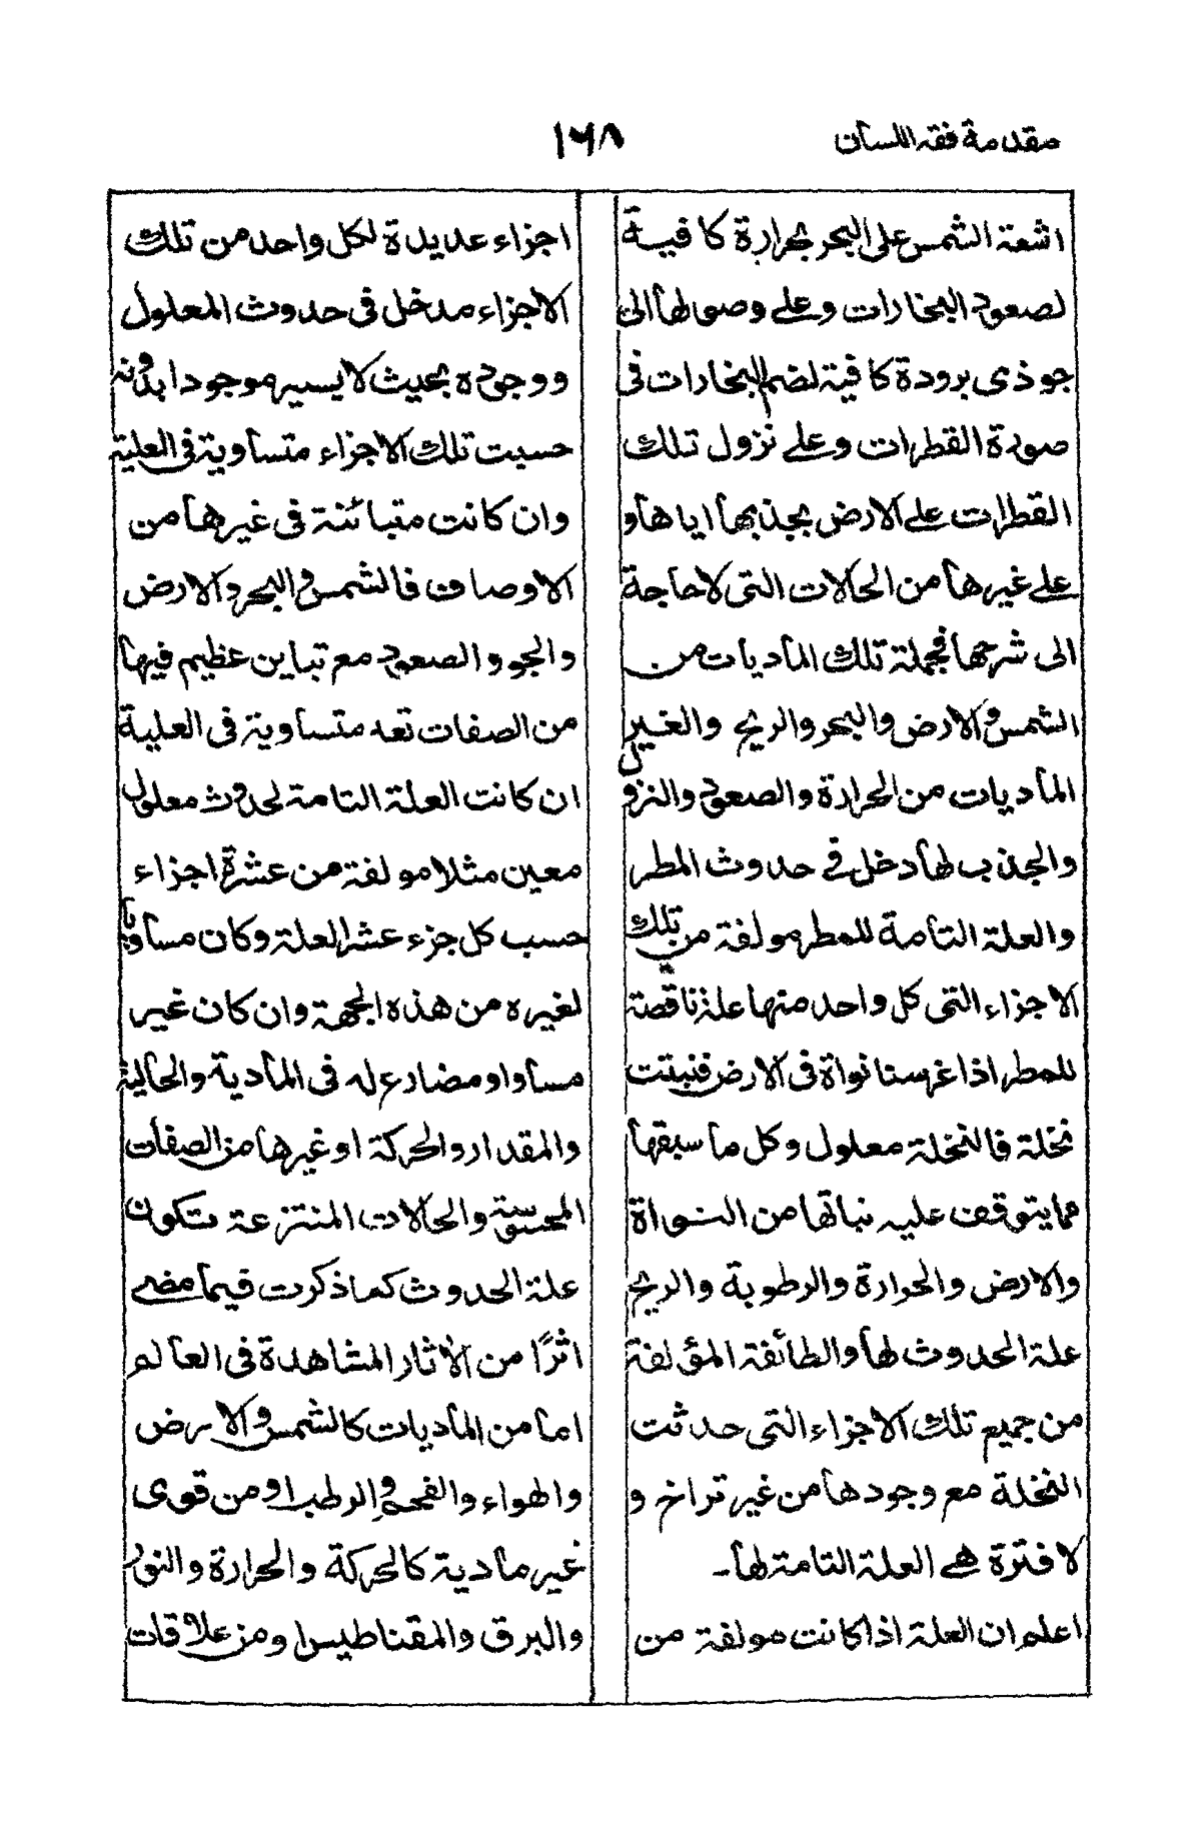 مقدمة فقه اللسان
١٦٨
اشعة الشمس على البحر بحرارة كافية
لصعود البخارات وعلى وصولها الى
جو ذى برودة كافية لضم البخارات فى
صورة القطرات وعلى نزول تلك
القطرات على الارض بجذبها اياها و
على غيرها من الحالات التى لا حاجة
الى شرحها فجملة تلك الماديات من
الشمس والارض والبحر والريح والغير
الماديات من الحرارة والصعود والنزول
والجذب لها دخل فى حدوث المطر
والعلة التامة للمطر مولفة من تلك
الاجزاء التى كل واحد منها علة ناقصة
للمطر اذا غرسنا نواة فى الارض فنبتت
نخلة فالنخلة معلول وكل ما سبقها
مما يتوقف عليه نباتها من النواة
والارض والحرارة والرطوبة والريح
علة الحدوث لها والطائفة المؤلفة
من جميع تلك الاجزاء التى حدثت
النخلة مع وجودها من غير تراخ و
لا فترة هى العلة التامة لها۔
اعلم ان العلة اذا كانت مولفة من
اجزاء عديدة لكل واحد من تلك
الاجزاء مدخل فى حدوث المعلول
ووجوده بحيث لا يسير موجودا بدونه
حسبت تلك الاجزاء متساوية فى العلية
وان كانت متبائنة فى غيرها من
الاوصاف فالشمس والبحر والارض
والجو والصعود مع تباين عظيم فيها
من الصفات تعد متساوية فى العلية
ان كانت العلة التامة لحدوث معلول
معين مثلا مولفة من عشرة اجزاء
حسب كل جزء عشر العلة وكان مساويا
لغيره من هذه الجهة وان كان غير
مساو او مضارع له فى المادية والحالية
والمقدار والحركة او غيرها من الصفات
المحسوسة والحالات المنتزعة تكون
علة الحدوث كما ذكرت فيما مضى
اثرًا من الاثار المشاهدة فى العالم
اما من الماديات كالشمس والارض
والهواء والقمح والرطب او من قوى
غير مادية كالحركة والحرارة والنور
والبرق والمقناطيس او من علاقات